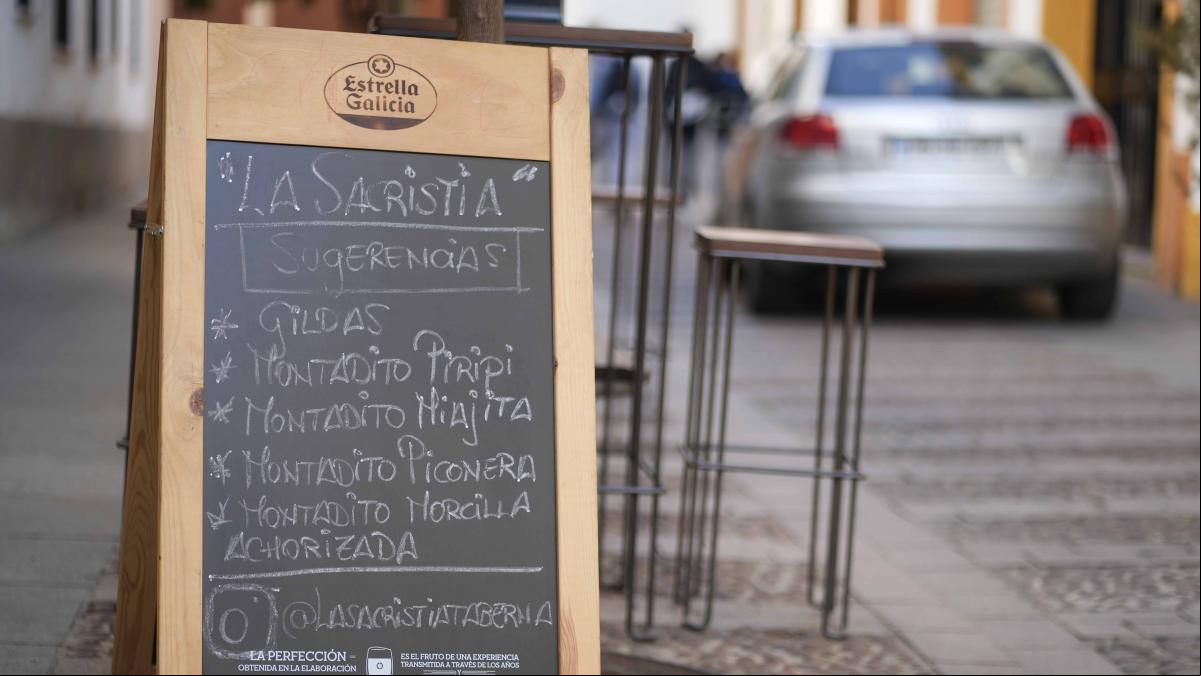 Estrella
Galicia
"LA SACRISTIA"
SUGERENCIAS
* GILDAS
* MONTADITO PIRIPI
* MONTADITO MIAJITA
* MONTADITO PICONERA
* MONTADITO MORCILLA
ACHORIZADA
@LASACRISTIATABERNA
LA PERFECCIÓN
OBTENIDA EN LA ELABORACIÓN
ES EL FRUTO DE UNA EXPERIENCIA
TRANSMITIDA A TRAVÉS DE LOS AÑOS
Y